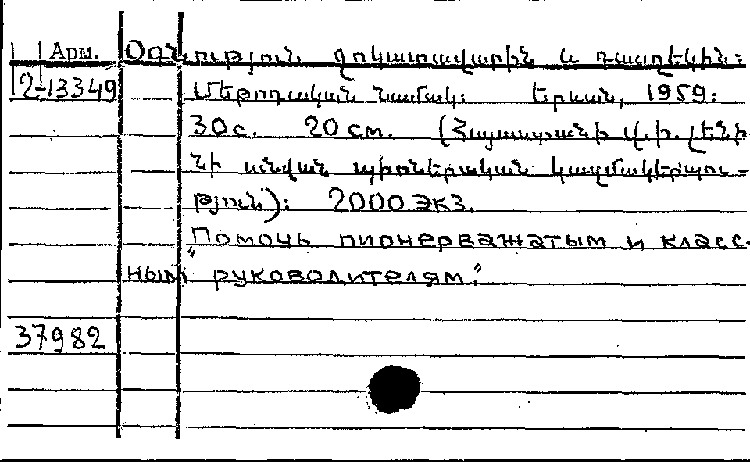 Арм. Օգնություն ջոկատավարին և դասղեկին:
2-13349 Մեթոդական նամակ: Երևան, 1959:
30 с. 20 см. (Հայաստանի Վ.ի. Լենի-
նի անվան պիոներական կազմակերպու-
թյուն): 2000 экз.
"Помощь пионервожатым и класс-
ным руководителям."
37982